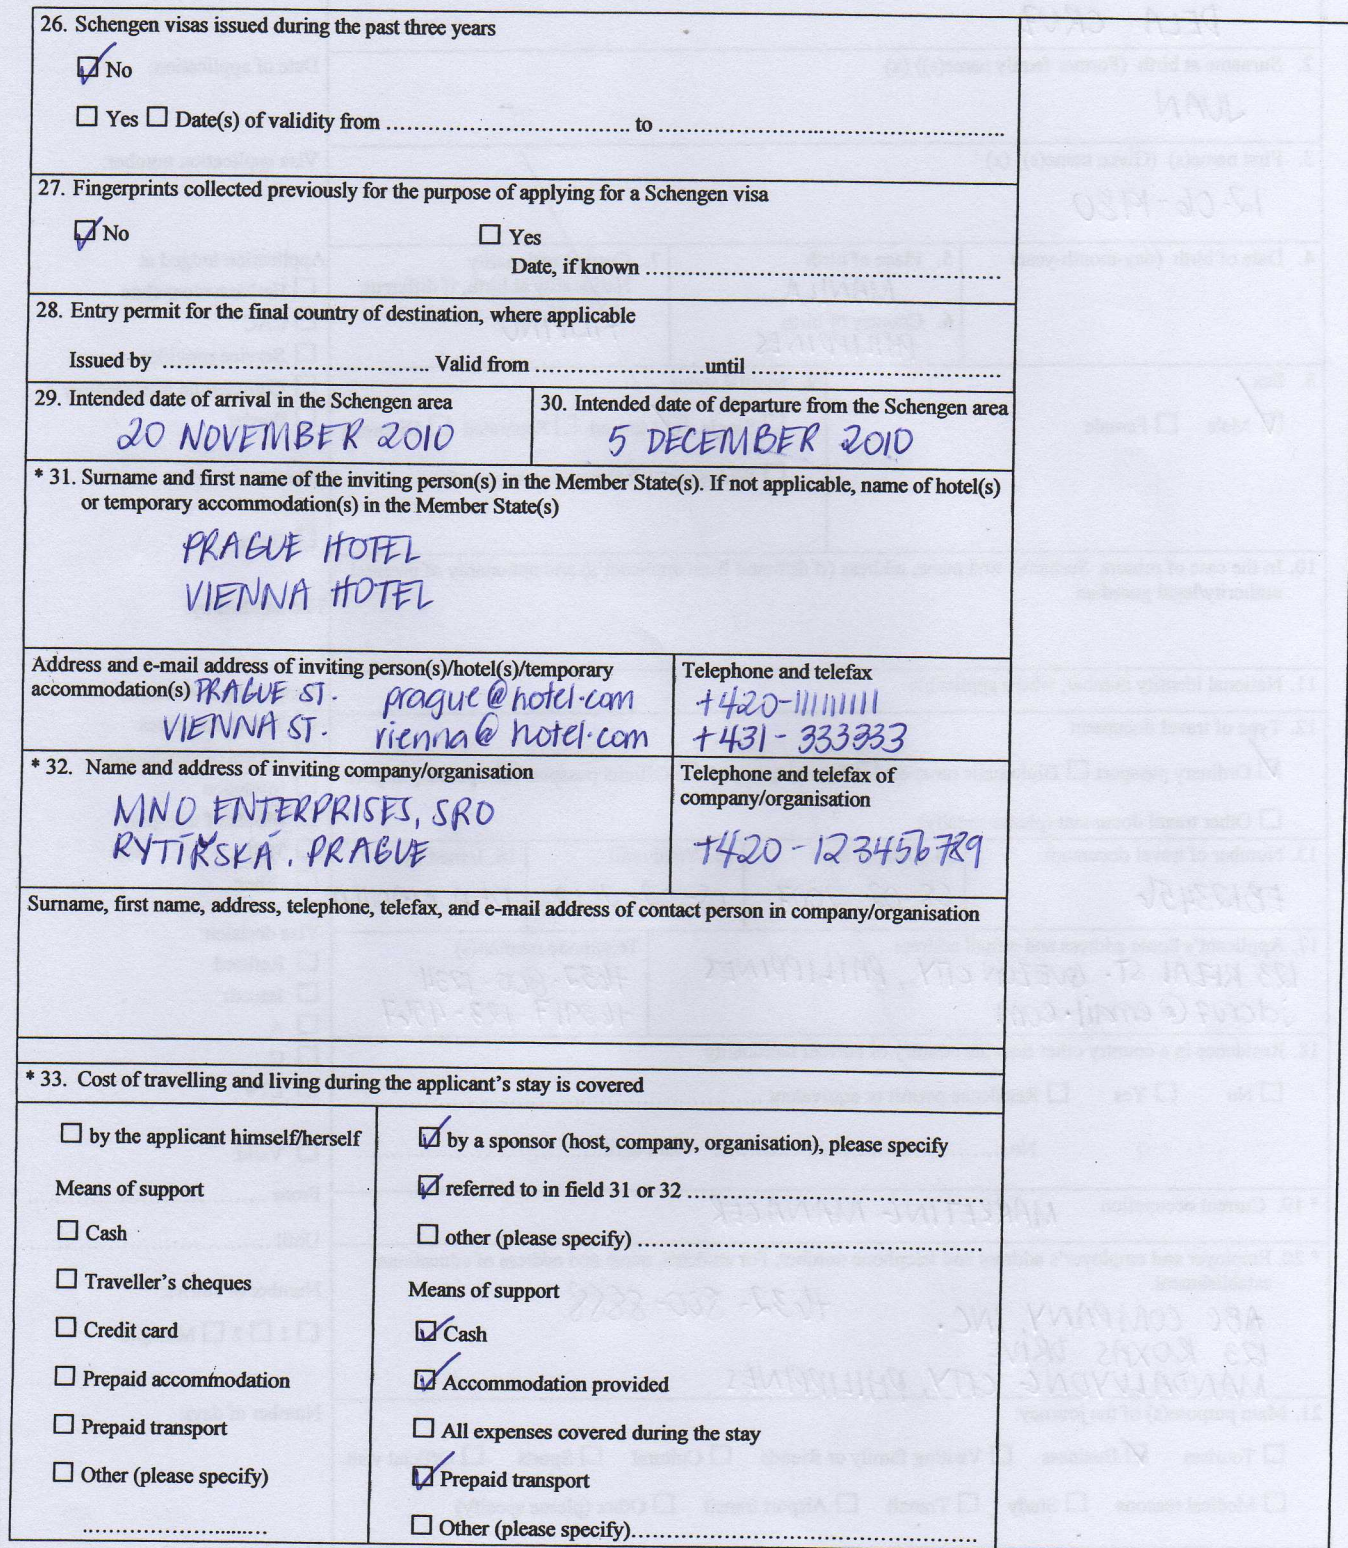 26. Schengen visas issued during the past three years
☑ No
☐ Yes ☐ Date(s) of validity from .............................. to ..........................................
27. Fingerprints collected previously for the purpose of applying for a Schengen visa
☑ No ☐ Yes
Date, if known ...........................................
28. Entry permit for the final country of destination, where applicable
Issued by ................................. Valid from ..................... until ...............................
29. Intended date of arrival in the Schengen area
20 NOVEMBER 2010
30. Intended date of departure from the Schengen area
5 DECEMBER 2010
* 31. Surname and first name of the inviting person(s) in the Member State(s). If not applicable, name of hotel(s)
or temporary accommodation(s) in the Member State(s)
PRAGUE HOTEL
VIENNA HOTEL
Address and e-mail address of inviting person(s)/hotel(s)/temporary
accommodation(s) PRAGUE ST. prague@hotel.com
VIENNA ST. vienna@hotel.com
Telephone and telefax
+420-111111111
+431-333333
* 32. Name and address of inviting company/organisation
MNO ENTERPRISES, SRO
RYTÍŘSKÁ, PRAGUE
Telephone and telefax of
company/organisation
+420-123456789
Surname, first name, address, telephone, telefax, and e-mail address of contact person in company/organisation
* 33. Cost of travelling and living during the applicant's stay is covered
☐ by the applicant himself/herself
Means of support
☐ Cash
☐ Traveller's cheques
☐ Credit card
☐ Prepaid accommodation
☐ Prepaid transport
☐ Other (please specify)
..........................
☑ by a sponsor (host, company, organisation), please specify
☑ referred to in field 31 or 32 ....................................
☐ other (please specify) ..........................................
Means of support
☑ Cash
☑ Accommodation provided
☐ All expenses covered during the stay
☑ Prepaid transport
☐ Other (please specify)..........................................